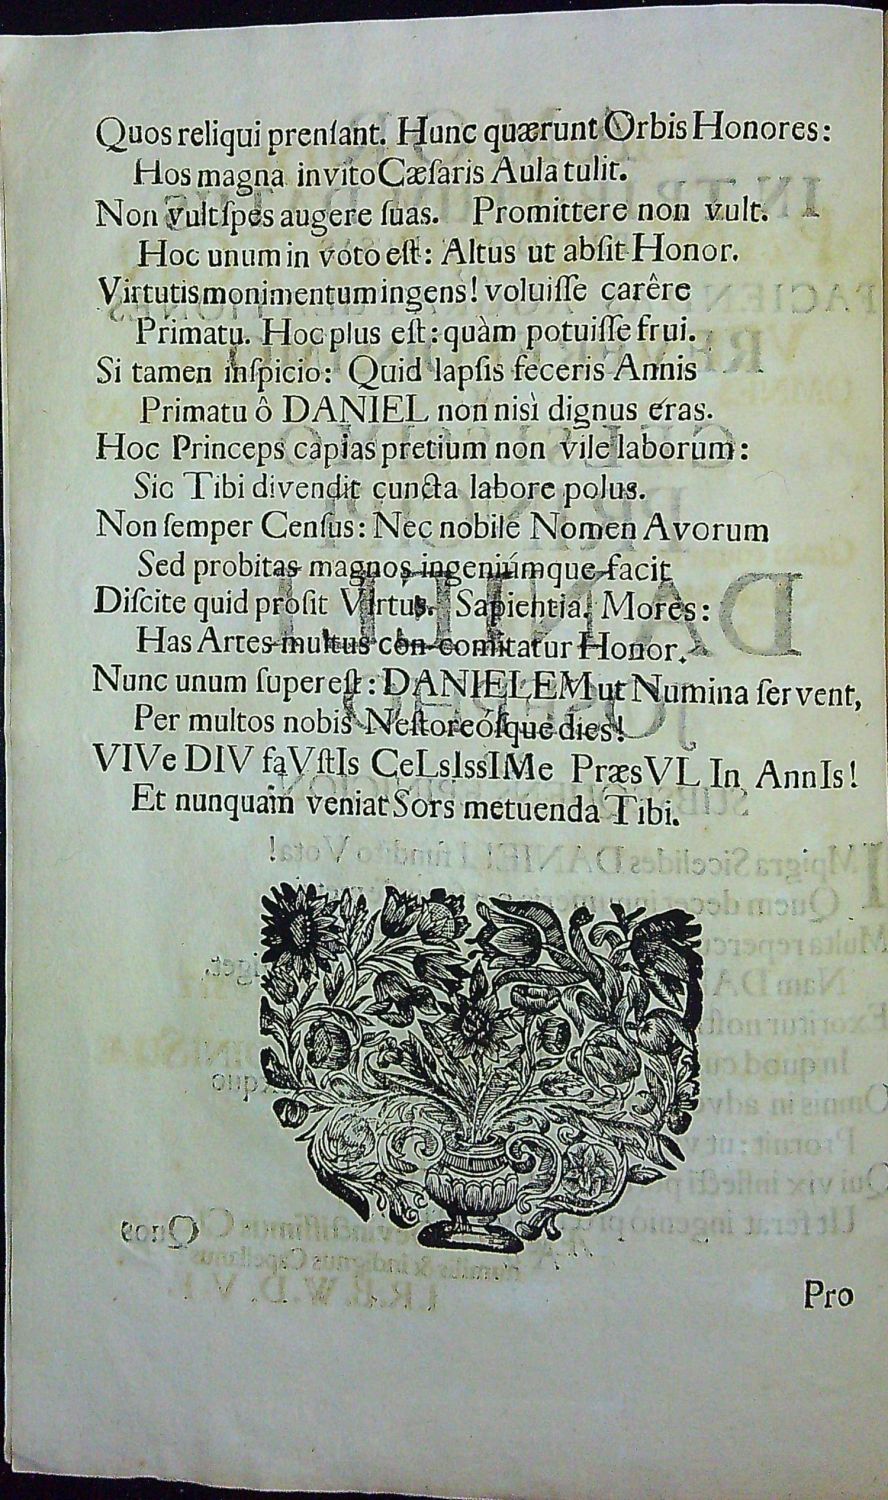 Quos reliqui prenſant. Hunc quærunt Orbis Honores:
Hos magna invito Cæſaris Aula tulit.
Non vult ſpes augere ſuas. Promittere non vult.
Hoc unum in voto eſt: Altus ut abſit Honor.
Virtutis monimentum ingens! voluiſſe carêre
Primatu. Hoc plus eſt: quàm potuiſſe frui.
Si tamen inſpicio: Quid lapſis feceris Annis
Primatu ô DANIEL non nisì dignus eras.
Hoc Princeps capias pretium non vile laborum:
Sic Tibi divendit cuncta labore polus.
Non ſemper Cenſus: Nec nobile Nomen Avorum
Sed probitas magnos ingeniúmque facit
Diſcite quid proſit Virtus. Sapientia. Mores:
Has Artes multus con-comitatur Honor.
Nunc unum ſupereſt: DANIELEM ut Numina ſervent,
Per multos nobis Neſtoreóſque dies!
VIVe DIV faVſtIs CeLsIssIMe PræsVL In AnnIs!
Et nunquam veniat Sors metuenda Tibi.
Pro